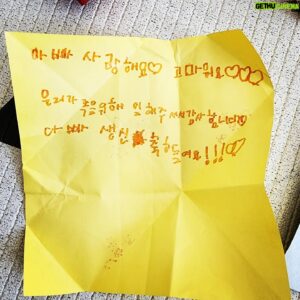 GETHUCINEMA
아빠 사랑해요♡ 고마워요♡♡♡
우리가 위해 일해주셔서감사합니다♡
아빠 생신 축하드려요!!!♡